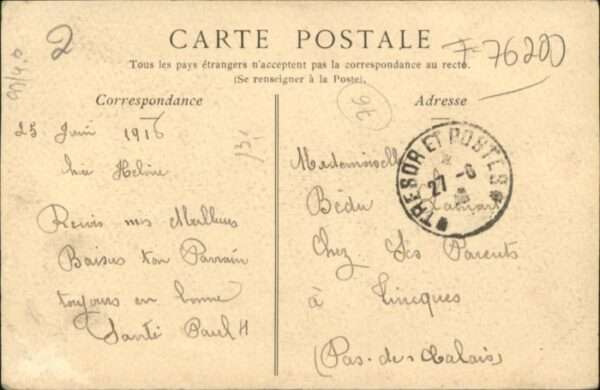 2
F-76200
CARTE POSTALE
Tous les pays étrangers n'acceptent pas la correspondance au recto.
(Se renseigner à la Poste).
Correspondance
Adresse
76
25 Juin 1916
Mademoiselle
TRESOR ET POSTES
27 - 6
Bédu
Chez Ses Parents
à Tincques
(Pas-de-Calais)
Reçois mes Meilleurs
Baisers ton Parrain
toujours en bonne
Santé Paul H